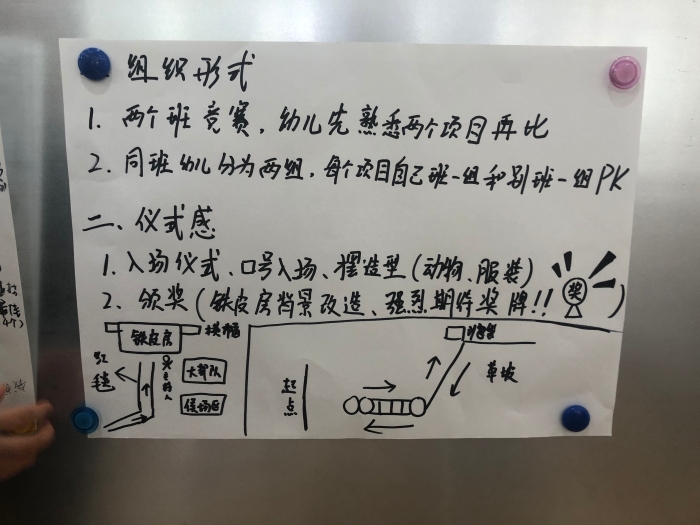 组织形式
1. 两个班竞赛，幼儿先熟悉两个项目再比
2. 同班幼儿分为两组，每个项目自己班一组和别班一组PK
二、仪式感
1. 入场仪式、口号入场、摆造型（动物、服装）
2. 颁奖（铁皮房背景改造、强烈期待奖牌!!）
奖
铁皮房
横幅
红毯
主持人
大部队
候场区
起点
草坡